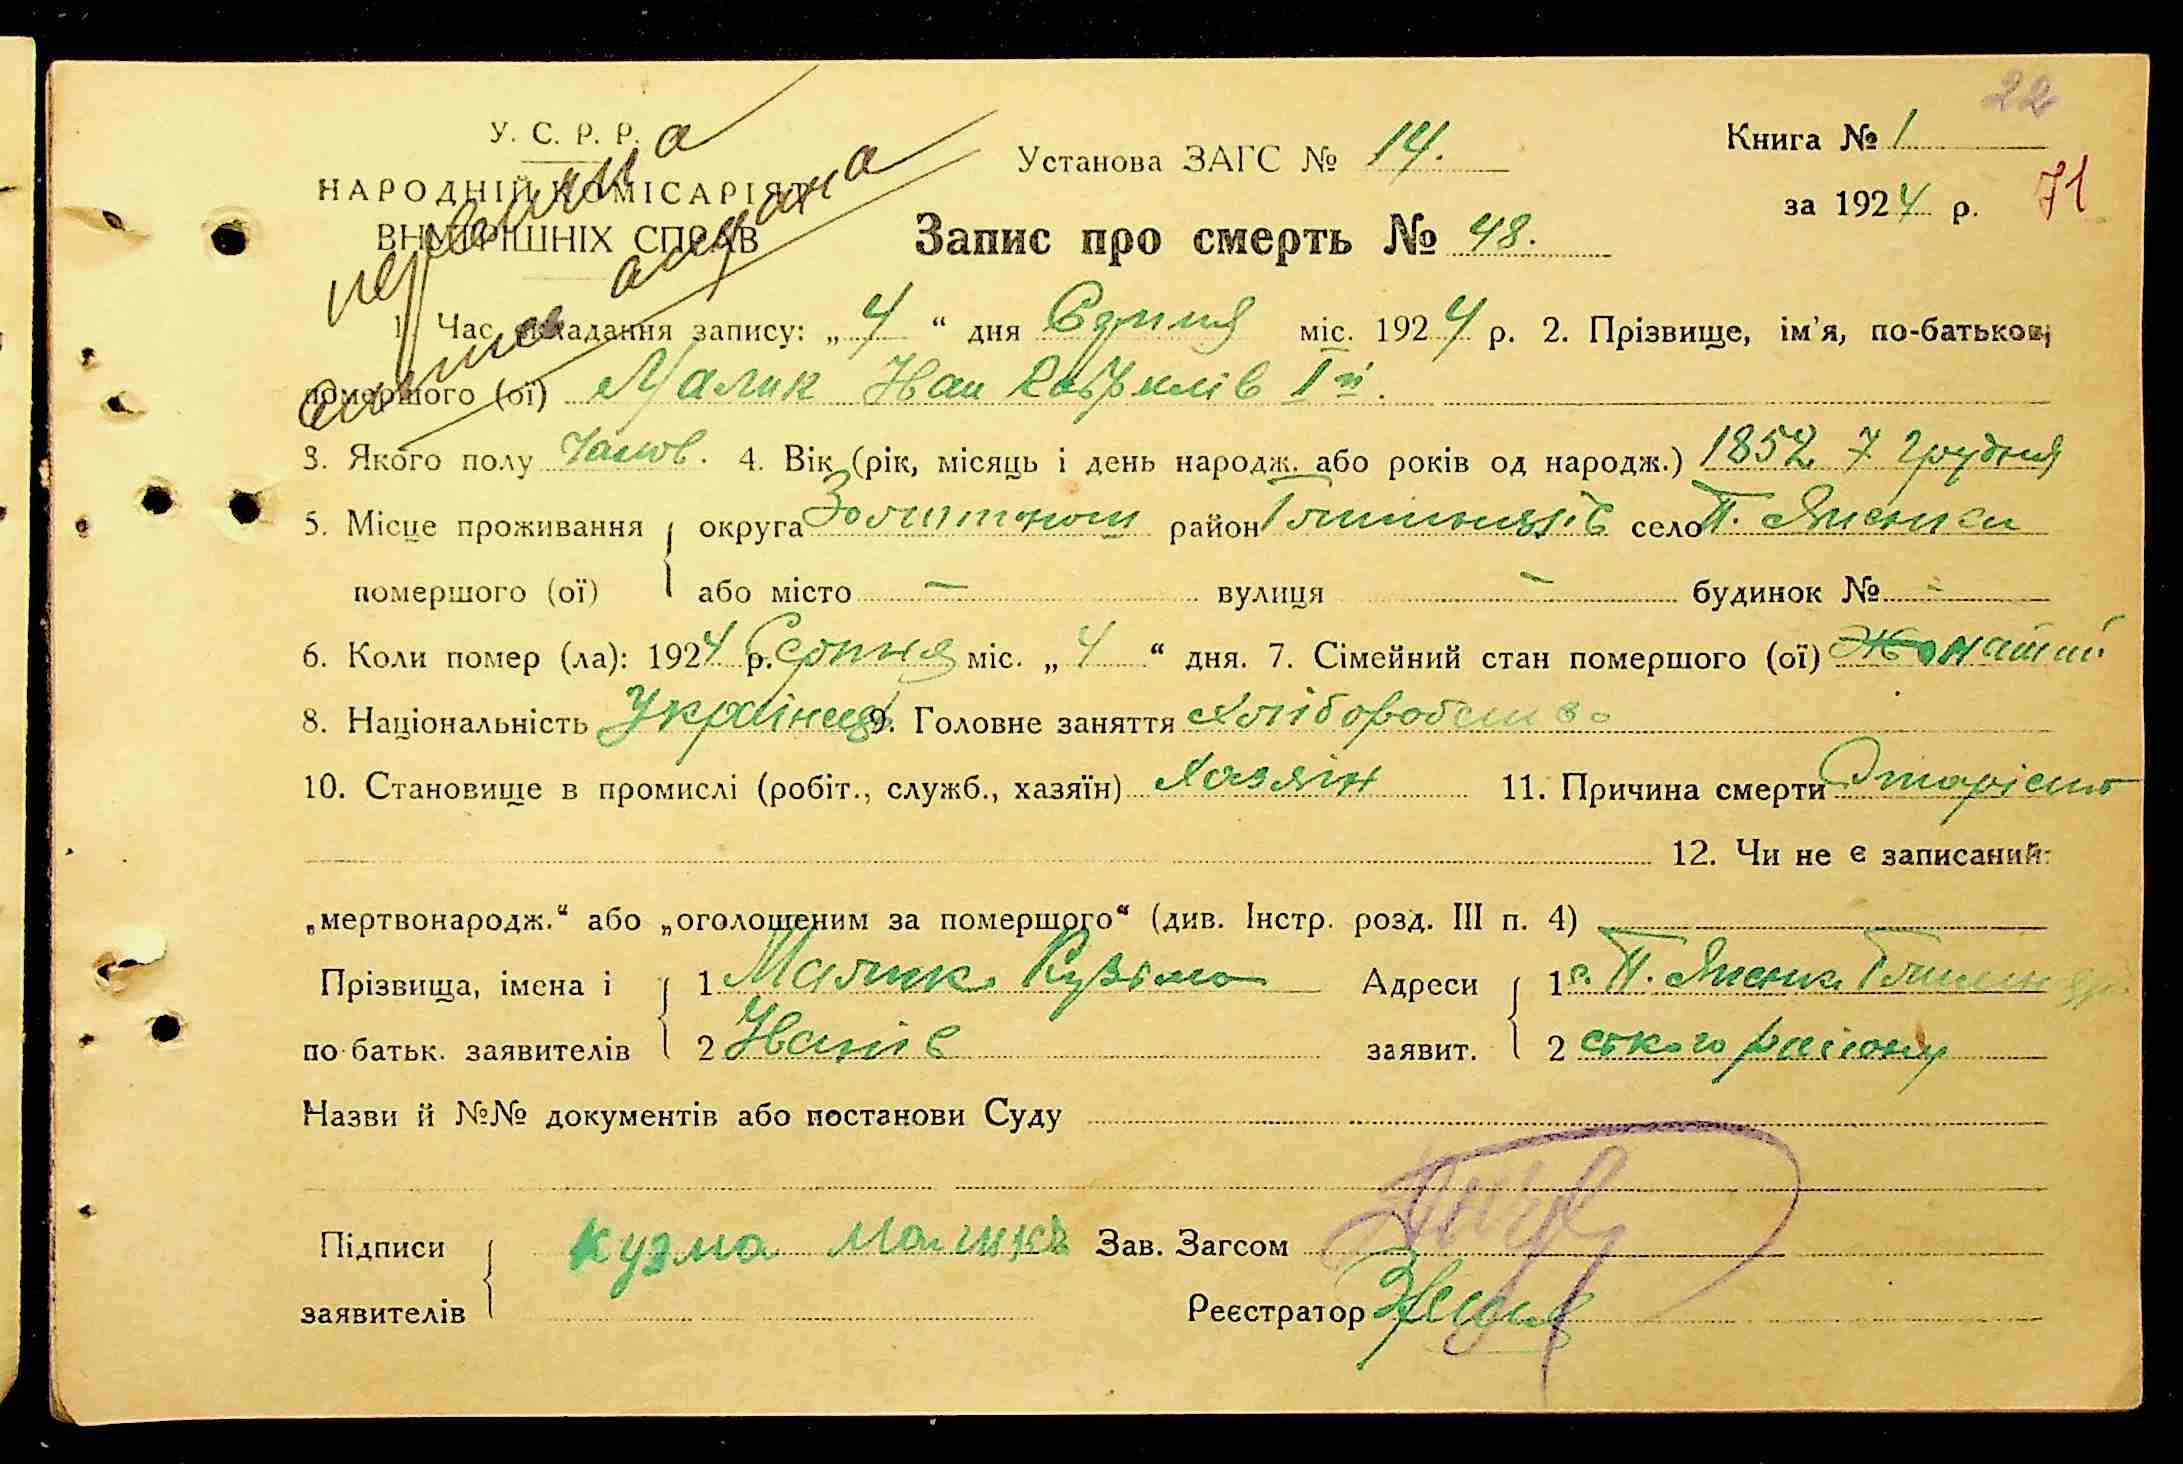 22
У. С. Р. Р. Установа ЗАГС № 14. Книга № 1
НАРОДНІЙ КОМІСАРІЯТ за 1924 р. 71
ВНУТРІШНІХ СПРАВ Запис про смерть № 48.
1. Час складання запису: „ 4 “ дня Серпня міс. 1924 р. 2. Прізвище, ім’я, по-батькові
помершого (ої) Малик Іван І й.
3. Якого полу Чолов. 4. Вік (рік, місяць і день народж. або років од народж.) 1852 7 Грудня
5. Місце проживання { округа Золотонош район село П. Яненки
помершого (ої) або місто — вулиця — будинок № -
6. Коли помер (ла): 1924 р. Серпня міс. „ 4 “ дня. 7. Сімейний стан помершого (ої) Жонатий
8. Національність Українец 9. Головне заняття Хліборобство
10. Становище в промислі (робіт., служб., хазяїн) Хазяїн 11. Причина смерти Старість
12. Чи не є записаний:
„мертвонародж.“ або „оголошеним за помершого“ (див. Інстр. розд. III п. 4)
Прізвища, імена і { 1 Малик Кузьма Адреси { 1 с. П. Яненки
по батьк. заявителів 2 Іванів заявит. 2 ського району
Назви й №№ документів або постанови Суду
Підписи { Кузма Маликъ Зав. Загсом
заявителів Реєстратор